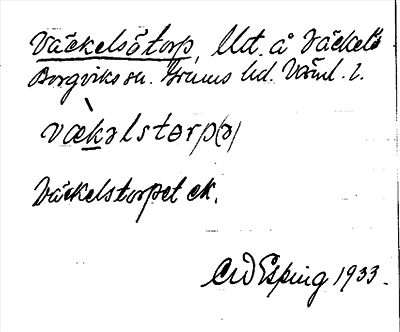 Väckelsötorp, Ut. å Väckelsö
Borgviks sn. Grums hd. Värml. l.
vækəlstɵrp(ə)
Väckelstorpet ek.
CW Esping 1933.